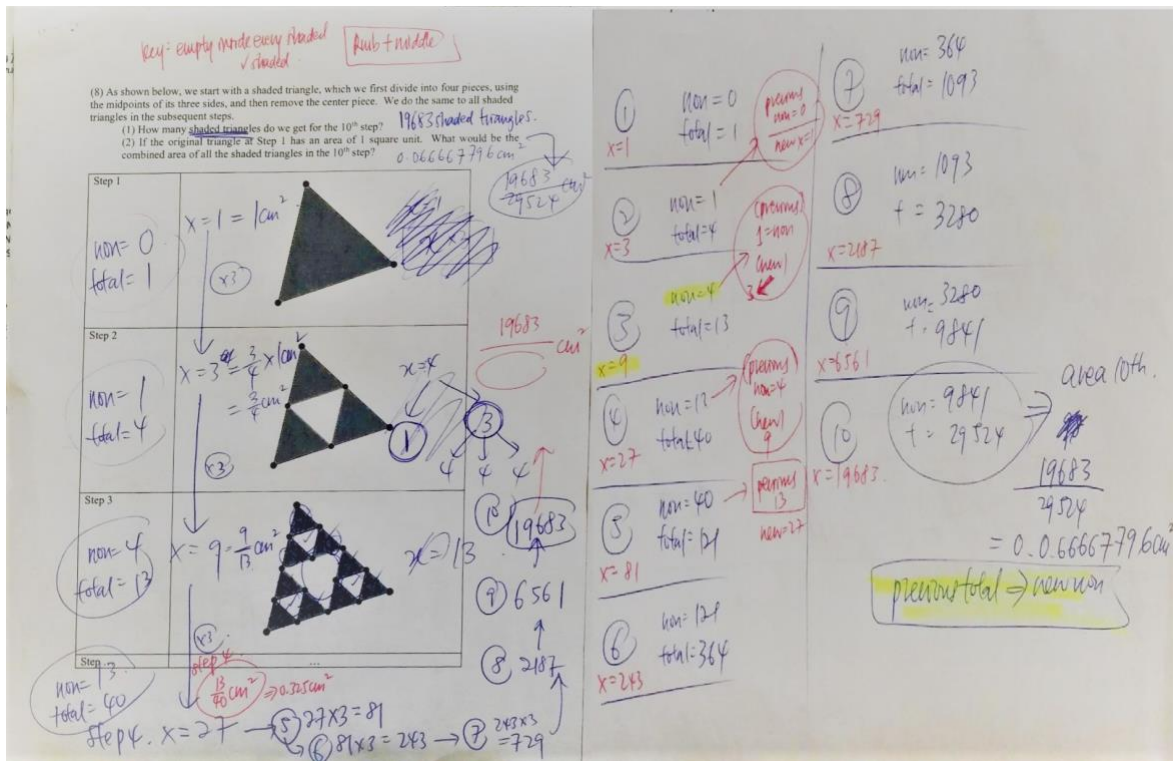 key = empty inside every shaded
✓ shaded.
(8) As shown below, we start with a shaded triangle, which we first divide into four pieces, using
the midpoints of its three sides, and then remove the center piece. We do the same to all shaded
triangles in the subsequent steps.
(1) How many shaded triangles do we get for the 10th step? 19683 shaded triangles.
(2) If the original triangle at Step 1 has an area of 1 square unit. What would be the
combined area of all the shaded triangles in the 10th step? 0.066667796 cm²
19683/29524 cm²
Step 1
non = 0
total = 1
x = 1 = 1cm²
x3
Step 2
non = 1
total = 4
x = 3 = 3/4 x 1cm²
= 3/4 cm²
x3
x = 4
1
3
4 4 4
19683 cm²
Step 3
non = 4
total = 13
x = 9 = 9/13 cm²
x = 13
x3
Step
...
non = 13
total = 40
step 4
13/40 cm² ⇒ 0.325cm²
step 4. x = 27 → ⑤ 27x3 = 81
⑥ 81x3 = 243 → ⑦ 243x3
= 729
⑧ 2187
⑨ 6561
⑩ 19683
①
x=1
non = 0
total = 1
previous
non = 0
new x = 1
②
x=3
non = 1
total = 4
(previous)
1 = non
(new)
3
③
x=9
non = 4
total = 13
④
x=27
non = 13
total = 40
(previous)
non = 4
(new)
9
⑤
x=81
non = 40
total = 121
previous
13
new = 27
⑥
x=243
non = 121
total = 364
⑦
x=729
non = 364
total = 1093
⑧
x=2187
non = 1093
t = 3280
⑨
x=6561
non = 3280
t = 9841
⑩
x=19683.
non = 9841
t = 29524
⇒ area 10th.
19683
29524
= 0.066667796cm²
previous total ⇒ new non